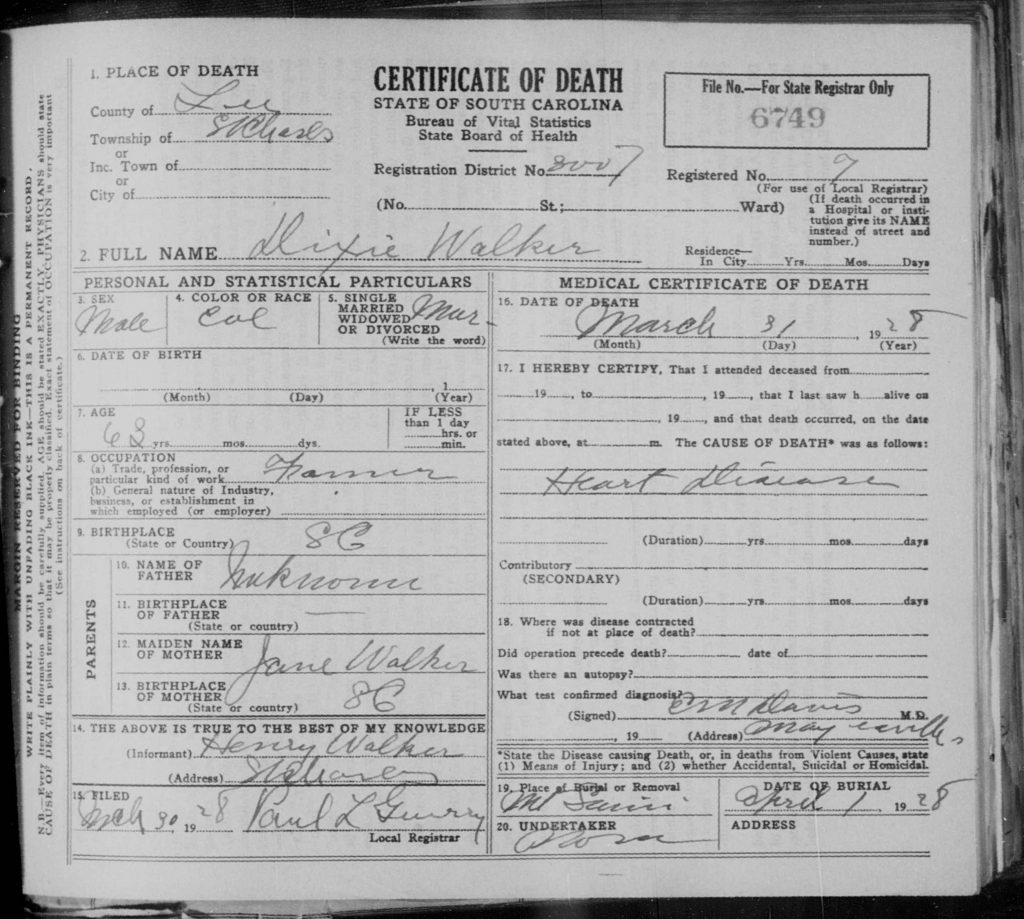 1. PLACE OF DEATH
County of Lee
Township of St Charles
or
Inc. Town of
or
City of
CERTIFICATE OF DEATH
STATE OF SOUTH CAROLINA
Bureau of Vital Statistics
State Board of Health
Registration District No. 3007
(No. St.; Ward)
File No.—For State Registrar Only
6749
Registered No. 9
(For use of Local Registrar)
(If death occurred in
a Hospital or insti-
tution give its NAME
instead of street and
number.)
2. FULL NAME Dixie Walker
Residence—
In City Yrs. Mos. Days
PERSONAL AND STATISTICAL PARTICULARS
3. SEX
Male
4. COLOR OR RACE
Col
5. SINGLE
MARRIED
WIDOWED
OR DIVORCED
(Write the word)
Mar-
6. DATE OF BIRTH
, 1
(Month) (Day) (Year)
7. AGE
68 yrs. mos. dys.
IF LESS
than 1 day
hrs. or
min.
8. OCCUPATION
(a) Trade, profession, or
particular kind of work Farmer
(b) General nature of Industry,
business, or establishment in
which employed (or employer)
9. BIRTHPLACE
(State or Country) SC
PARENTS
10. NAME OF
FATHER Unknown
11. BIRTHPLACE
OF FATHER —
(State or country)
12. MAIDEN NAME
OF MOTHER Jane Walker
13. BIRTHPLACE
OF MOTHER
(State or country) SC
14. THE ABOVE IS TRUE TO THE BEST OF MY KNOWLEDGE
(Informant) Henry Walker
(Address) St Charles
15. FILED
Mch 30 1928 Paul L
Local Registrar
MEDICAL CERTIFICATE OF DEATH
16. DATE OF DEATH
March 31 1928
(Month) (Day) (Year)
17. I HEREBY CERTIFY, That I attended deceased from
19 , to , 19 , that I last saw h alive on
, 19 , and that death occurred, on the date
stated above, at m. The CAUSE OF DEATH* was as follows:
Heart Disease
(Duration) yrs. mos. days
Contributory
(SECONDARY)
(Duration) yrs. mos. days
18. Where was disease contracted
if not at place of death?
Did operation precede death? date of
Was there an autopsy?
What test confirmed diagnosis?
(Signed) Davis M.D.
, 19 (Address) Mayesville
*State the Disease causing Death, or, in deaths from Violent Causes, state
(1) Means of Injury; and (2) whether Accidental, Suicidal or Homicidal.
19. Place of Burial or Removal
Mt
DATE OF BURIAL
April 1 1928
20. UNDERTAKER
ADDRESS
MARGIN RESERVED FOR BINDING
WRITE PLAINLY WITH UNFADING BLACK INK—THIS IS A PERMANENT RECORD.
N. B.—Every item of information should be carefully supplied. AGE should be stated EXACTLY. PHYSICIANS should state
CAUSE OF DEATH in plain terms so that it may be properly classified. Exact statement of OCCUPATION is very important
(See instructions on back of certificate.)